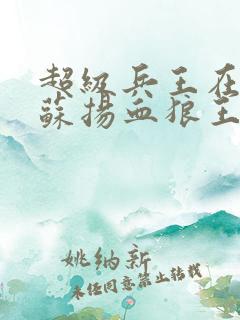 超級兵王在
蘇揚血狼王
姚纳新
未任同意禁止转载